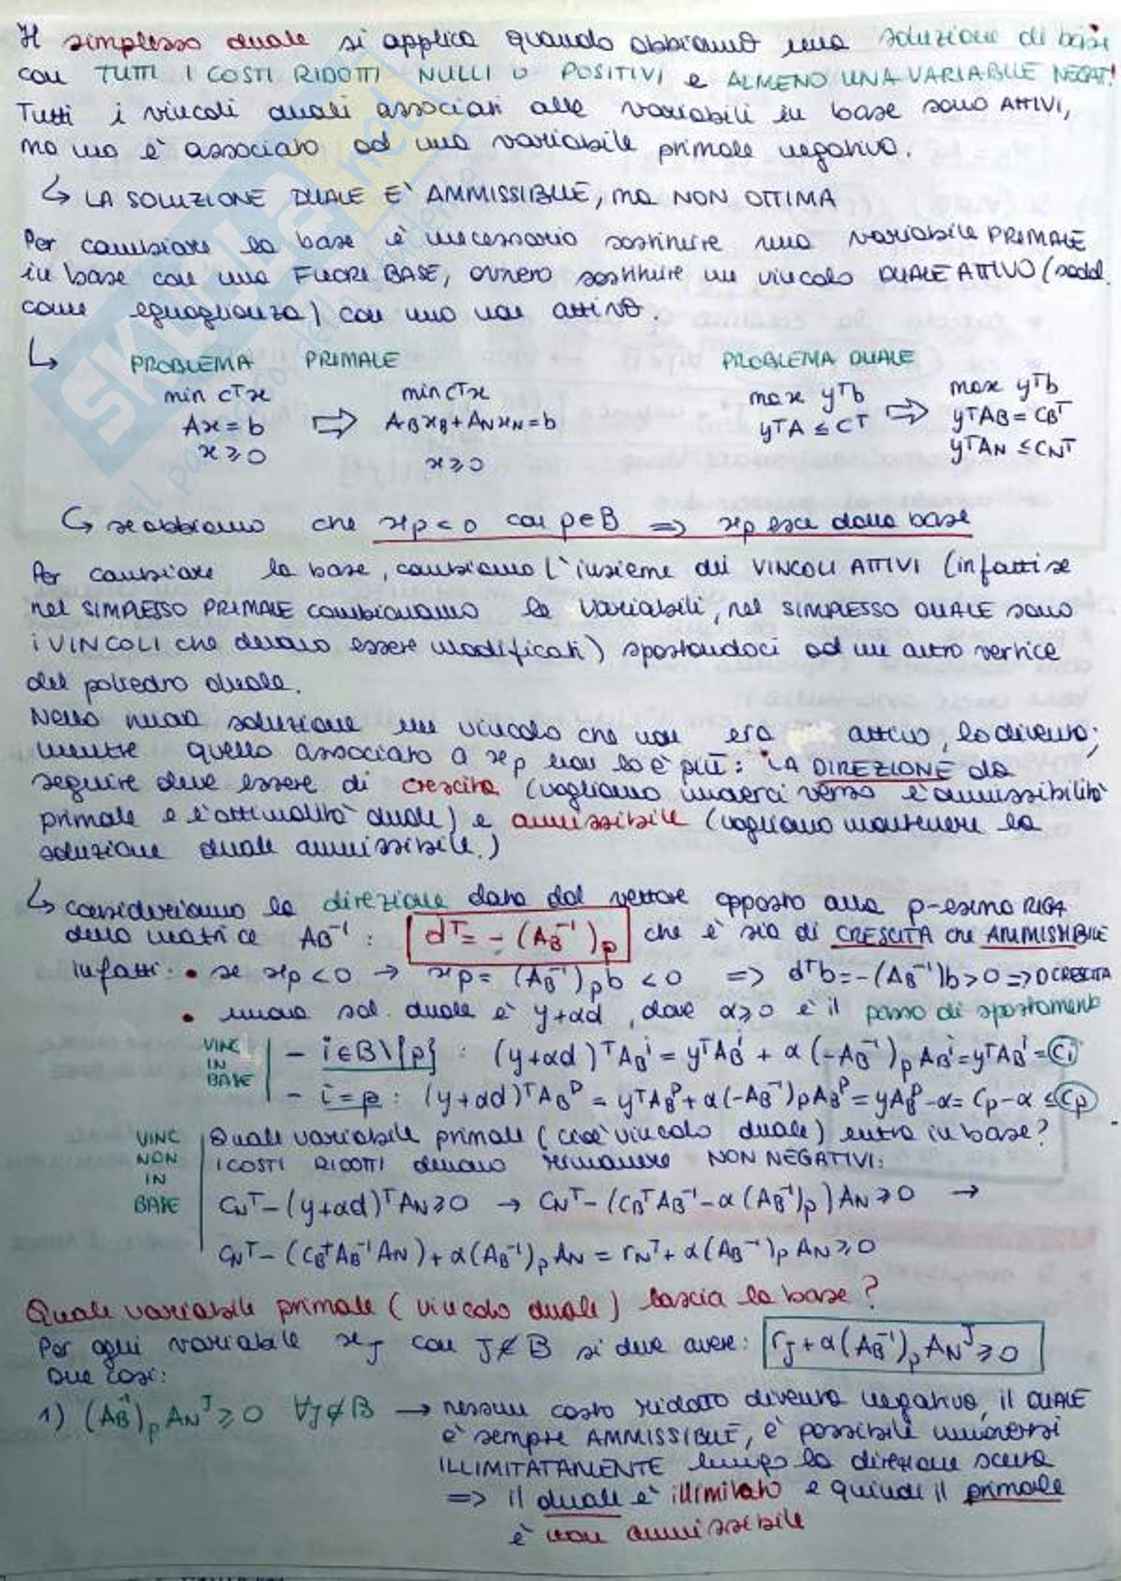 Il simplesso duale si applica quando abbiamo una soluzione di base
con TUTTI I COSTI RIDOTTI NULLI o POSITIVI e ALMENO UNA VARIABILE NEGAT!
Tutti i vincoli duali associati alle variabili in base sono ATTIVI,
ma uno è associato ad una variabile primale negativa.
↳ LA SOLUZIONE DUALE E' AMMISSIBILE, ma NON OTTIMA
Per cambiare la base è necessario sostituire una variabile PRIMALE
in base con una FUORI BASE, ovvero sostituire un vincolo DUALE ATTIVO (sodd.
come eguaglianza) con uno non attivo.
↳ PROBLEMA PRIMALE PROBLEMA DUALE
min cᵀx min cᵀx max yᵀb max yᵀb
Ax = b ⇒ A_B x_B + A_N x_N = b yᵀA ≤ Cᵀ ⇒ yᵀA_B = C_Bᵀ
x ≥ 0 x ≥ 0 yᵀA_N ≤ C_Nᵀ
↳ se abbiamo che xp < 0 con p∈B ⇒ xp esce dalla base
Per cambiare la base, cambiamo l'insieme dei VINCOLI ATTIVI (infatti se
nel SIMPLESSO PRIMALE cambiavamo le variabili, nel SIMPLESSO DUALE sono
i VINCOLI che devono essere modificati) spostandoci ad un altro vertice
del poliedro duale.
Nella nuova soluzione un vincolo che non era attivo, lo diventa;
mentre quello associato a xp non lo è più: LA DIREZIONE da
seguire deve essere di crescita (vogliamo muoverci verso l'ammissibilità
primale e l'ottimalità duale) e ammissibile (vogliamo mantenere la
soluzione duale ammissibile.)
↳ consideriamo la direzione data dal vettore opposto alla p-esima RIGA
della matrice A_B⁻¹ : dᵀ = - (A_B⁻¹)p che è sia di CRESCITA che AMMISSIBILE
infatti: • se xp < 0 → xp = (A_B⁻¹)p b < 0 ⇒ dᵀb = -(A_B⁻¹)b > 0 ⇒ D CRESCITA
• nuova sol. duale è y+αd, dove α ≥ 0 è il passo di spostamento
VINC IN BASE - i∈B\{p} : (y+αd)ᵀA_Bⁱ = yᵀA_Bⁱ + α(-A_B⁻¹)p A_Bⁱ = yᵀA_Bⁱ = Ci
- i = p : (y+αd)ᵀA_Bᵖ = yᵀA_Bᵖ + α(-A_B⁻¹)p A_Bᵖ = yA_Bᵖ - α = Cp - α ≤ Cp
VINC NON IN BASE Quale variabile primale (cioè vincolo duale) entra in base?
I COSTI RIDOTTI devono rimanere NON NEGATIVI:
C_Nᵀ - (y+αd)ᵀA_N ≥ 0 → C_Nᵀ - (C_Bᵀ A_B⁻¹ - α(A_B⁻¹)p) A_N ≥ 0 →
C_Nᵀ - (C_Bᵀ A_B⁻¹ A_N) + α(A_B⁻¹)p A_N = r_Nᵀ + α(A_B⁻¹)p A_N ≥ 0
Quale variabile primale (vincolo duale) lascia la base?
Per ogni variabile x_J con J∉B si deve avere: r_J + α(A_B⁻¹)p A_Nᴶ ≥ 0
Due casi:
1) (A_B⁻¹)p A_Nᴶ ≥ 0 ∀J∉B → nessun costo ridotto diventa negativo, il DUALE
è sempre AMMISSIBILE, è possibile muoversi
ILLIMITATAMENTE lungo la direzione scelta
⇒ il duale è illimitato e quindi il primale
è non ammissibile